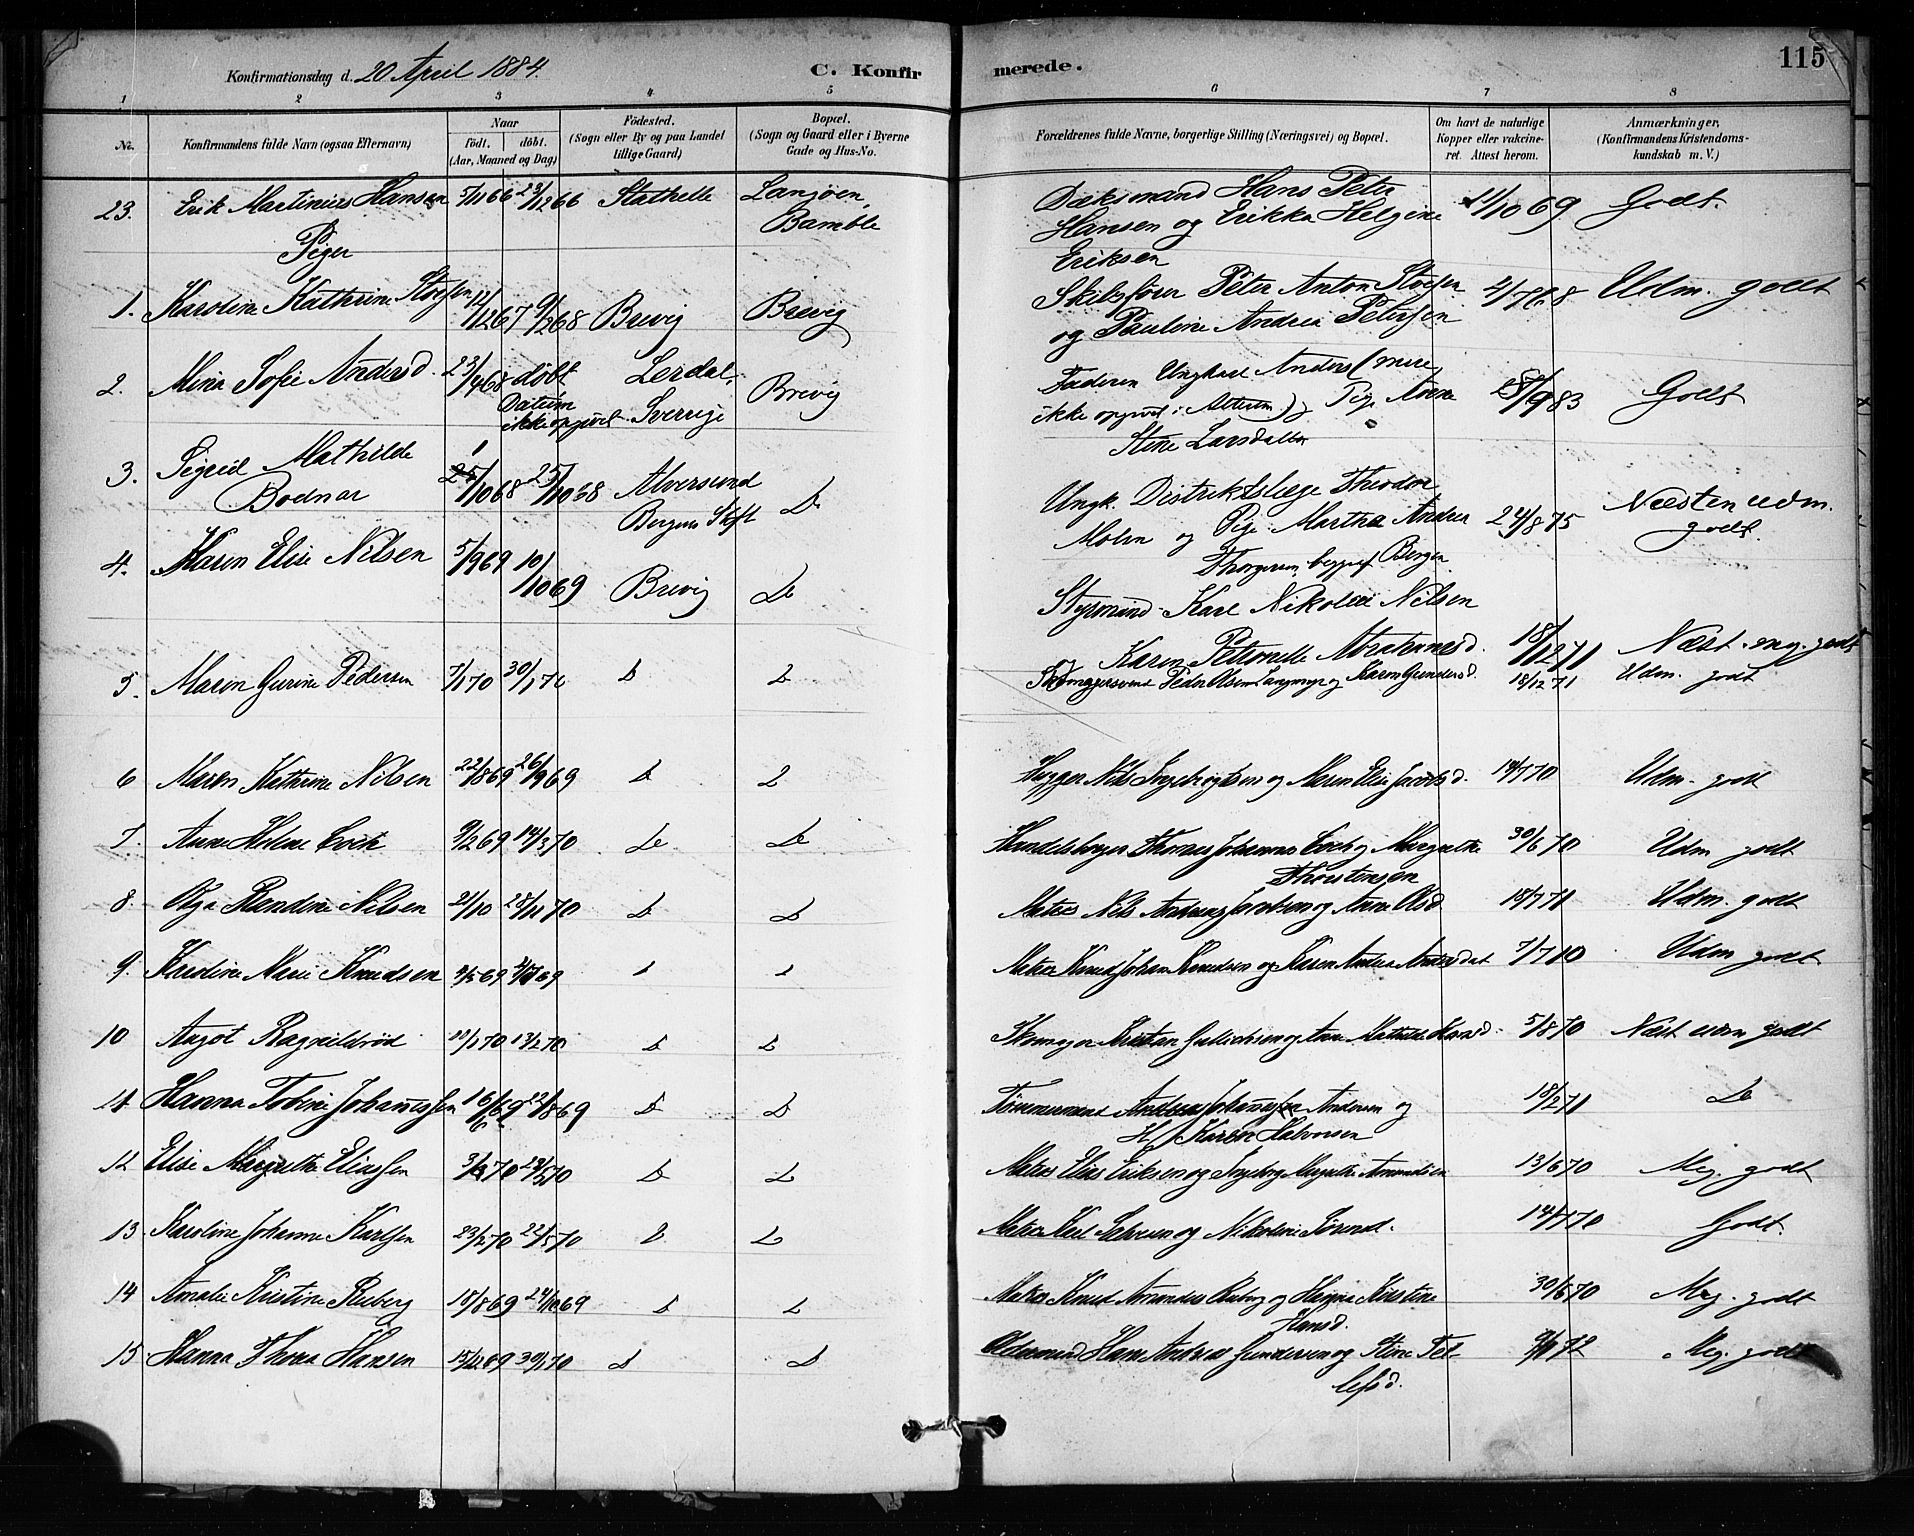 115
Konfirmationsdag d. 20 April 1884.
C. Konfirmerede.
1 2 3 4 5 6 7 8
No.
Konfirmandens fulde Navn (ogsaa Efternavn)
Naar
født. døbt.
(Aar, Maaned og Dag)
Fødested.
(Sogn eller By og paa Landet tillige Gaard)
Bopæl.
(Sogn og Gaard eller i Byerne Gade og Hus-No.
Forældrenes fulde Navne, borgerlige Stilling (Næringsvei) og Bopæl.
Om havt de naturlige Kopper eller vakcineret. Attest herom.
Anmærkninger,
(Konfirmandens Kristendomskundskab m. V.)
23. Erik Martinius Hansen 5/11 66 23/12 66 Stathelle Langøen, Bamble
Dæksmand Hans Peter Hansen og Erikka Helgine Eriksen 11/10 69 Godt.
Piger
1. Karoline Kathrine 12/12 67 9/2 68 Brevig Brevig
Peter Anton og Pauline Andrea Petersen 2/7 68 Udm. godt
2. Mina Sofie Andersd. 23/4 68 døbt Datum ikke opgivet Lerdal, Sverrige Brevig
Faderen Ungkarl Anders (mere ikke opgivet i Attesten) Pige Anna Stine Larsdatter 9 83 Godt
3. Sigrid Mathilde Bodnar 1/10 68 25/10 68 Alversund Bergens Stift Do
Ungk. Distriktslæge Theodor og Pige Martha Andrea Bergen 24/8 75 Næsten udm. godt.
4. Karen Elise Nilsen 5/9 69 10/10 69 Brevig Do
Styrmand Karl Nikolai Nilsen Karen Petronelle Abrahamsd. 18/12 71 Næst. meg. godt
5. Maren Gurine Pedersen 7/1 70 30/1 70 D D
Peder Olsen og Karen Gundersd. 18/12 71 Udm. godt
6 Maren Kathrine Nilsen 22/8 69 26/9 69 D D
Nils Ingebrigtsen og Maren Elise Jacobsd. 14/7 70 Udm. godt
7. Anne Helene Cock 9/2 69 14/3 70 Do Do
Handelsborger Thomas Johannes Cock og Margrethe Thorstensen 30/6 70 Udm godt
8. Olga Randine Nilsen 21/10 28/11 70 D D
Matros Nils Andreas Jacobsen og Anne Olsd 18/7 71 Udm. godt
9. Karoline Marie Knudsen 69 69 D D
Matros Knud Johan Knudsen og Karen Andrea Andersdat 7/7 70 Udm godt
10 Aagot Ragnildrød 11/1 70 13/2 70 D D
Skomager Kristian Gullichsen og Anne Mathilde Hansd. 5/8 70 Næst udm godt
11 Hanna Tobine Johannessen 16/6 69 22/8 69 D D
Tømmermand Andersen og H/ Karen Halvorsen 18/2 71 Do
12 Elise Margrethe Eliassen 70 29/5 70 D D
Matros Elias Eriksen og Ingeborg Margrethe Amundsen 13/6 70 Meg. godt
13 Karoline Johanne Karlsen 23/2 70 22/5 70 D D
Matros Karl og Nikoline Sørensd. 14/7 70 Godt.
14 Amalie Kristine Ruberg 18/8 69 24/10 69 D D
Matros Knud Amandus Ruberg og Helgine Kirstine Hansd. 30/6 70 Meg. godt
15 Hanna Thora Hansen 15/12 69 30/1 70 D D
Hans Andreas Gundersen og Stine Tellefsd. 72 Meg. godt